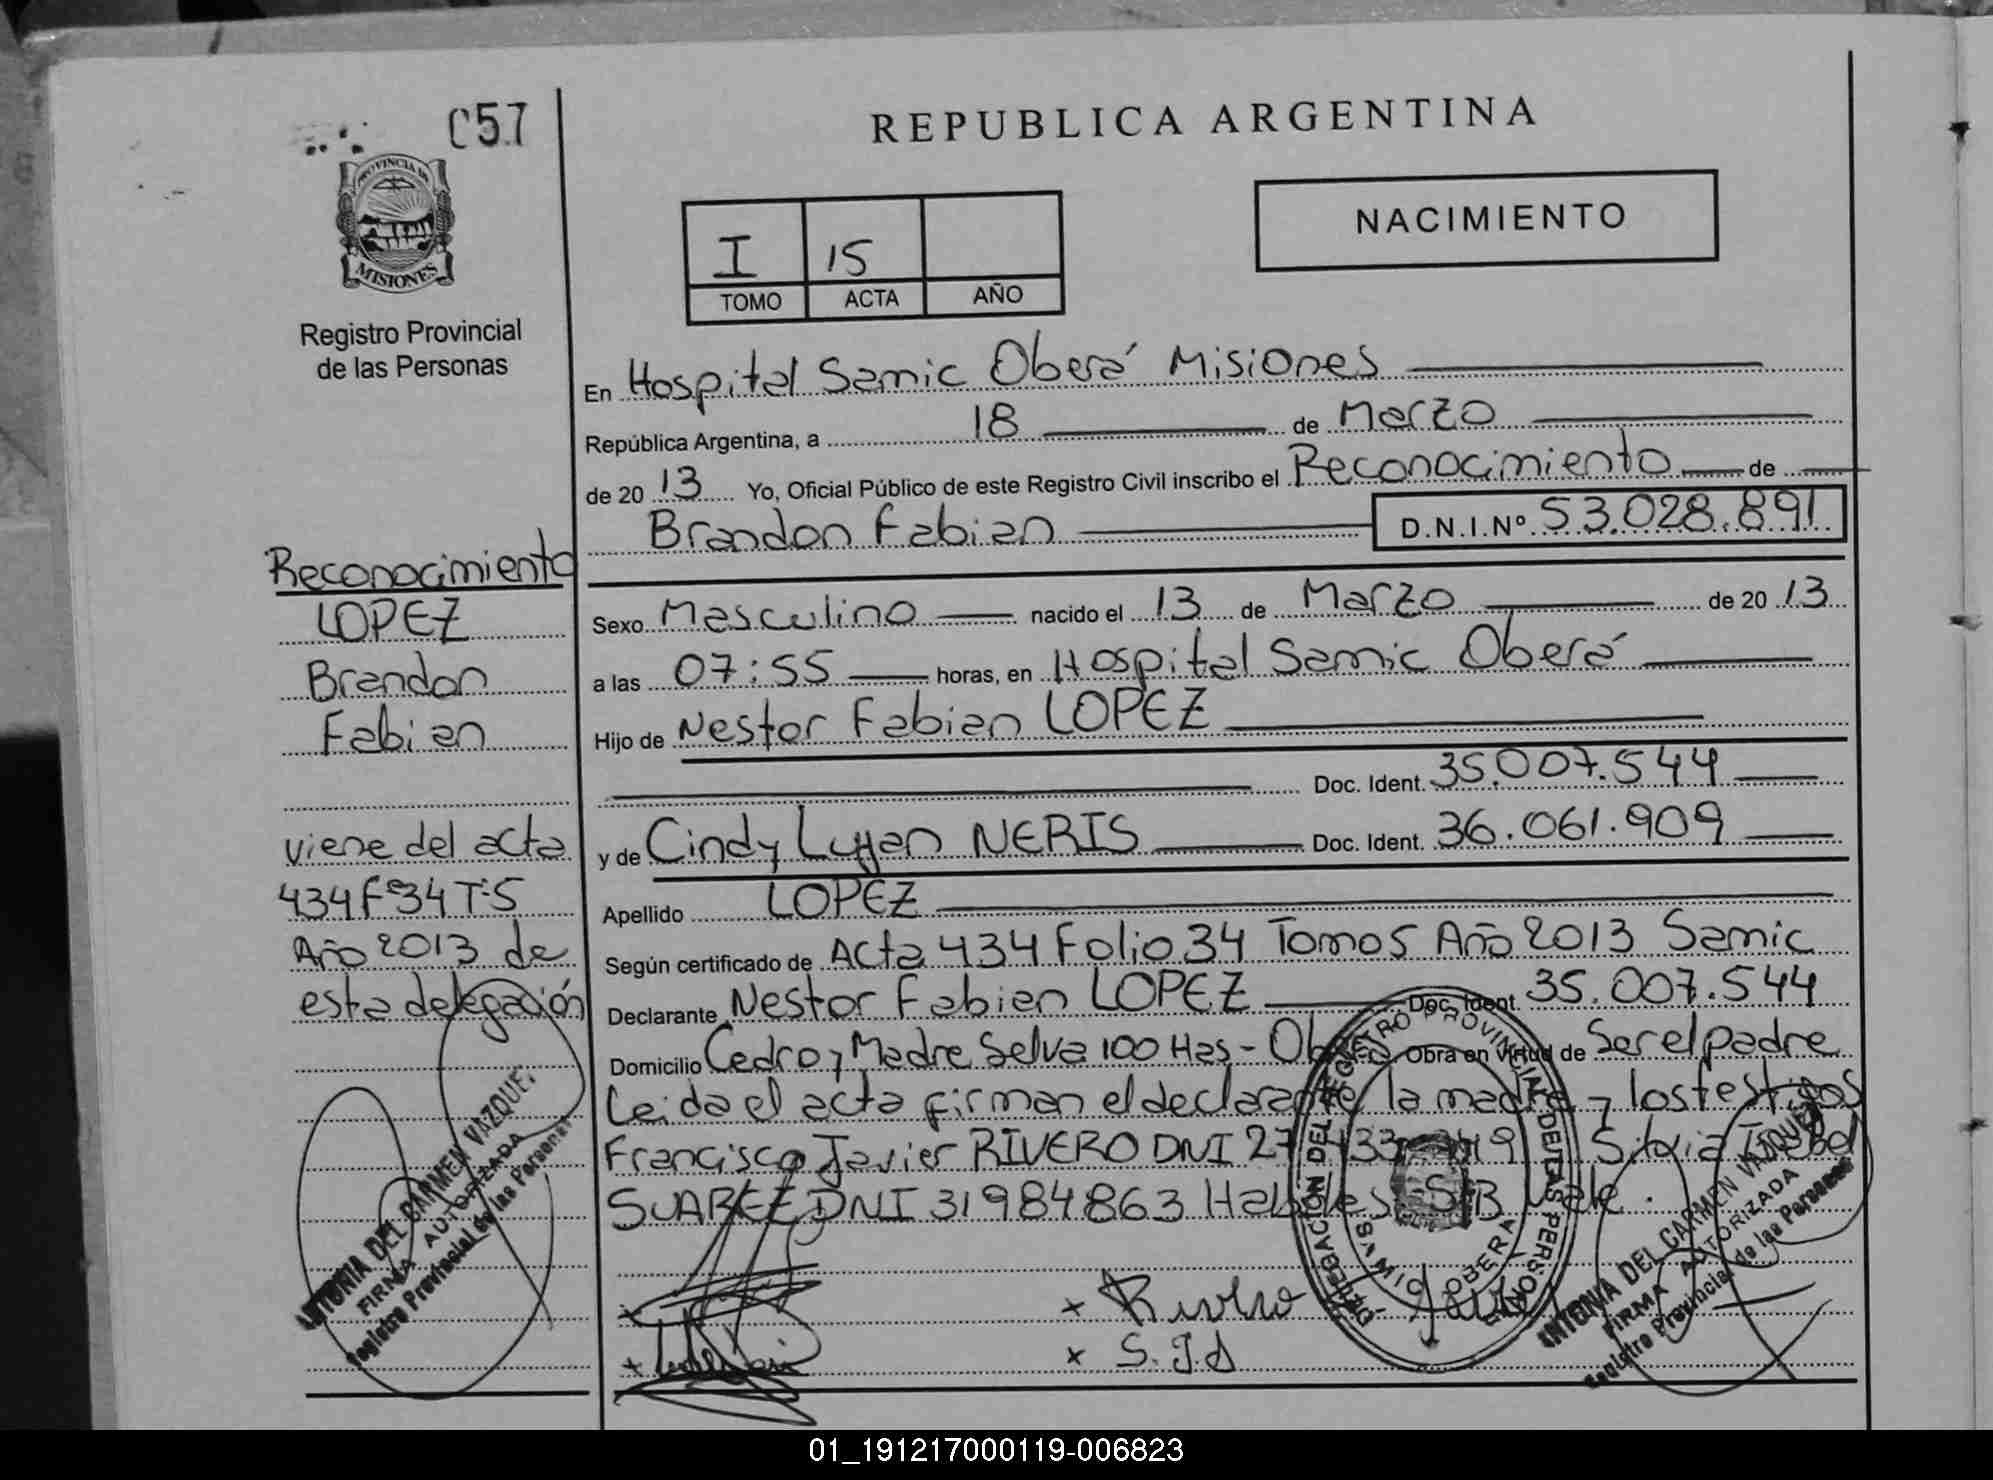 057
PROVINCIA DE
MISIONES
Registro Provincial
de las Personas
REPUBLICA ARGENTINA
I 15
TOMO ACTA AÑO
NACIMIENTO
En Hospital Samic Oberá Misiones
República Argentina, a 18 de Marzo
de 20 13 Yo, Oficial Público de este Registro Civil inscribo el Reconocimiento de
Brandon Fabian D.N.I.Nº 53.028.891
Reconocimiento
LOPEZ
Brandon
Fabian
viene del acta
434 F 34 T-5
Año 2013 de
esta delegación
Sexo Masculino nacido el 13 de Marzo de 20 13
a las 07:55 horas, en Hospital Samic Oberá
Hijo de Nestor Fabian LOPEZ
Doc. Ident. 35.007.544
y de Cindy Lujan NERIS Doc. Ident. 36.061.909
Apellido LOPEZ
Según certificado de Acta 434 Folio 34 Tomo 5 Año 2013 Samic
Declarante Nestor Fabian LOPEZ Doc. Ident. 35.007.544
Domicilio Cedro y Madre Selva 100 Has - Obra en virtud de Ser el padre
Leida el acta firman el declarante la madre y los testigos
Francisco Javier RIVERO DNI 27 Silvia Isabel
SUAREZ DNI 31984863 Habiles S/B Vale.
x Rivero
x S.I.S
DELEGACION DEL REGISTRO PROVINCIAL DE LAS PERSONAS
OBERA
ANTONIA DEL CARMEN VAZQUEZ
FIRMA AUTORIZADA
Registro Provincial de las Personas
ANTONIA DEL CARMEN VAZQUEZ
FIRMA AUTORIZADA
Registro Provincial de las Personas
01_191217000119-006823